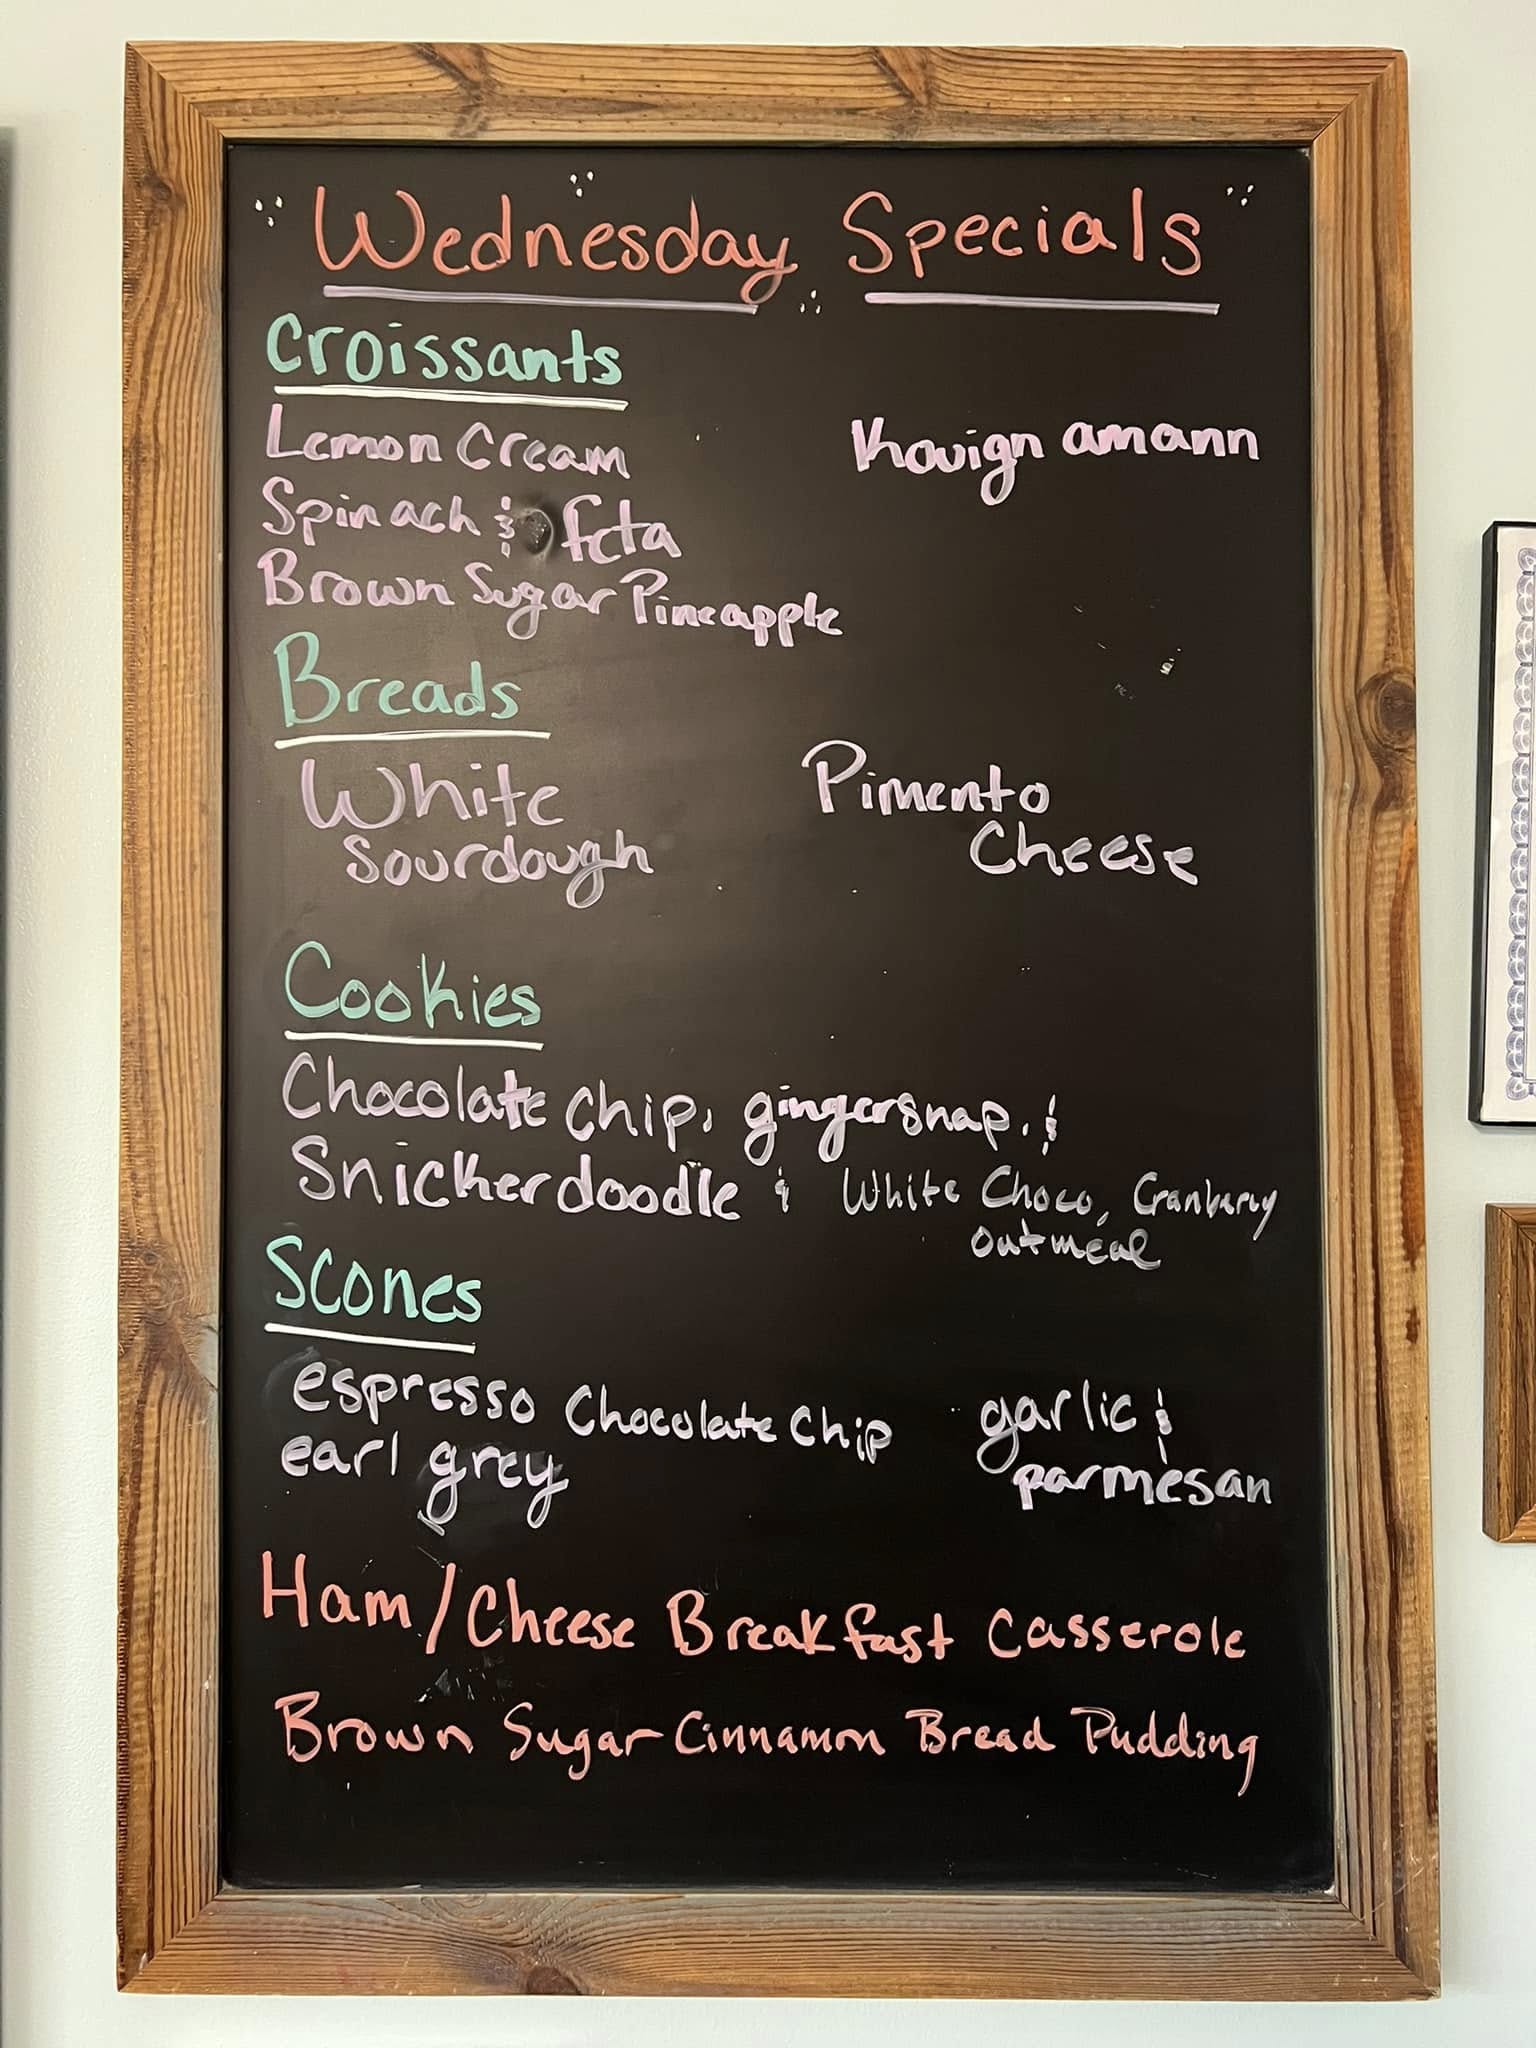 Wednesday Specials
Croissants
Lemon Cream
Kouign amann
Spinach & feta
Brown Sugar Pineapple
Breads
White
Sourdough
Pimento
Cheese
Cookies
Chocolate Chip, gingersnap, &
Snickerdoodle & White Choco, Cranberry
Oatmeal
Scones
espresso Chocolate Chip
earl grey
garlic &
parmesan
Ham/Cheese Breakfast Casserole
Brown Sugar Cinnamon Bread Pudding